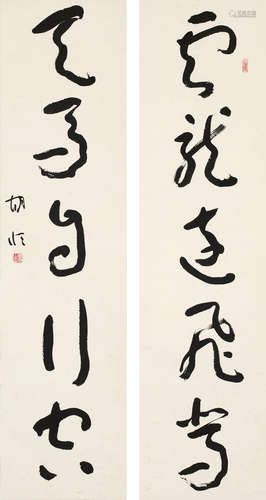 雲龍遠飛駕
天馬自行空
胡